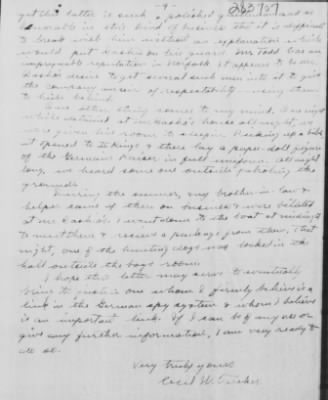 - 9 -
263757
get this latter is such a polished gentleman and so
honorable in this kind of business that it is
to treat with him without an explanation which
would put Sasko on his guard. Mr Todd has an
reputation in Norfolk. It appears to be Mr.
Sasko's desire to get several such men into it to give
the company an air of respectability using them
to hide behind.
One other thing comes to my mind.
while detained at Mr Sasko's house all night, we
were given his room to sleep in. Picking up a bible
it opened to 2 Kings & there lay a paper doll figure
of the German Kaiser in full uniform. All night
long, we heard some one outside patroling the
grounds.
During the summer, my brother-in-law &
helper came up there on business & were
at Mr Sasko's. I went down to the boat at midnight
to meet them & receive a package from them, that
night, one of the hunting dogs was locked in the
hall outside the boys' room.
I hope this letter may serve to eventually
bring to justice one whom I firmly believe is a
link in the German spy system & whom I believe
is an important link. If I can be of any use or
give any further information, I am very ready to
do so.
Very truly yours
Cecil W.